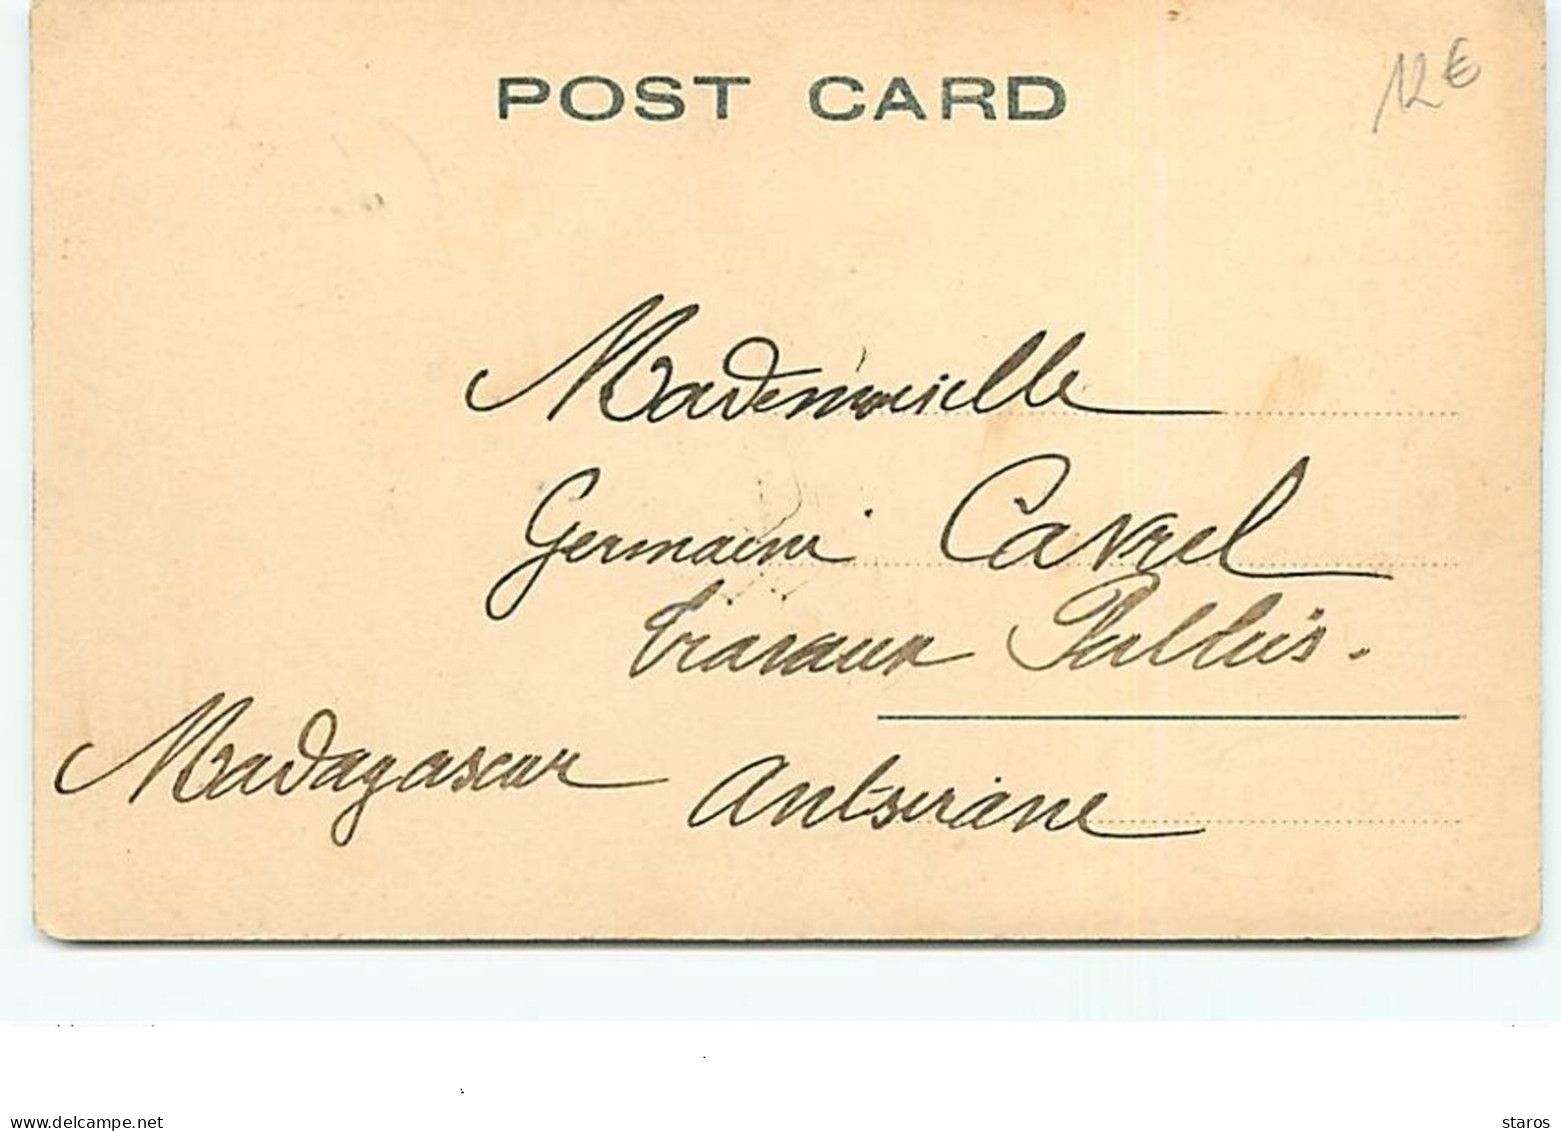 POST CARD
12€
Mademoiselle
Germaine Cavrel
Travaux Publics.
Madagascar Antsirane
www.delcampe.net
staros